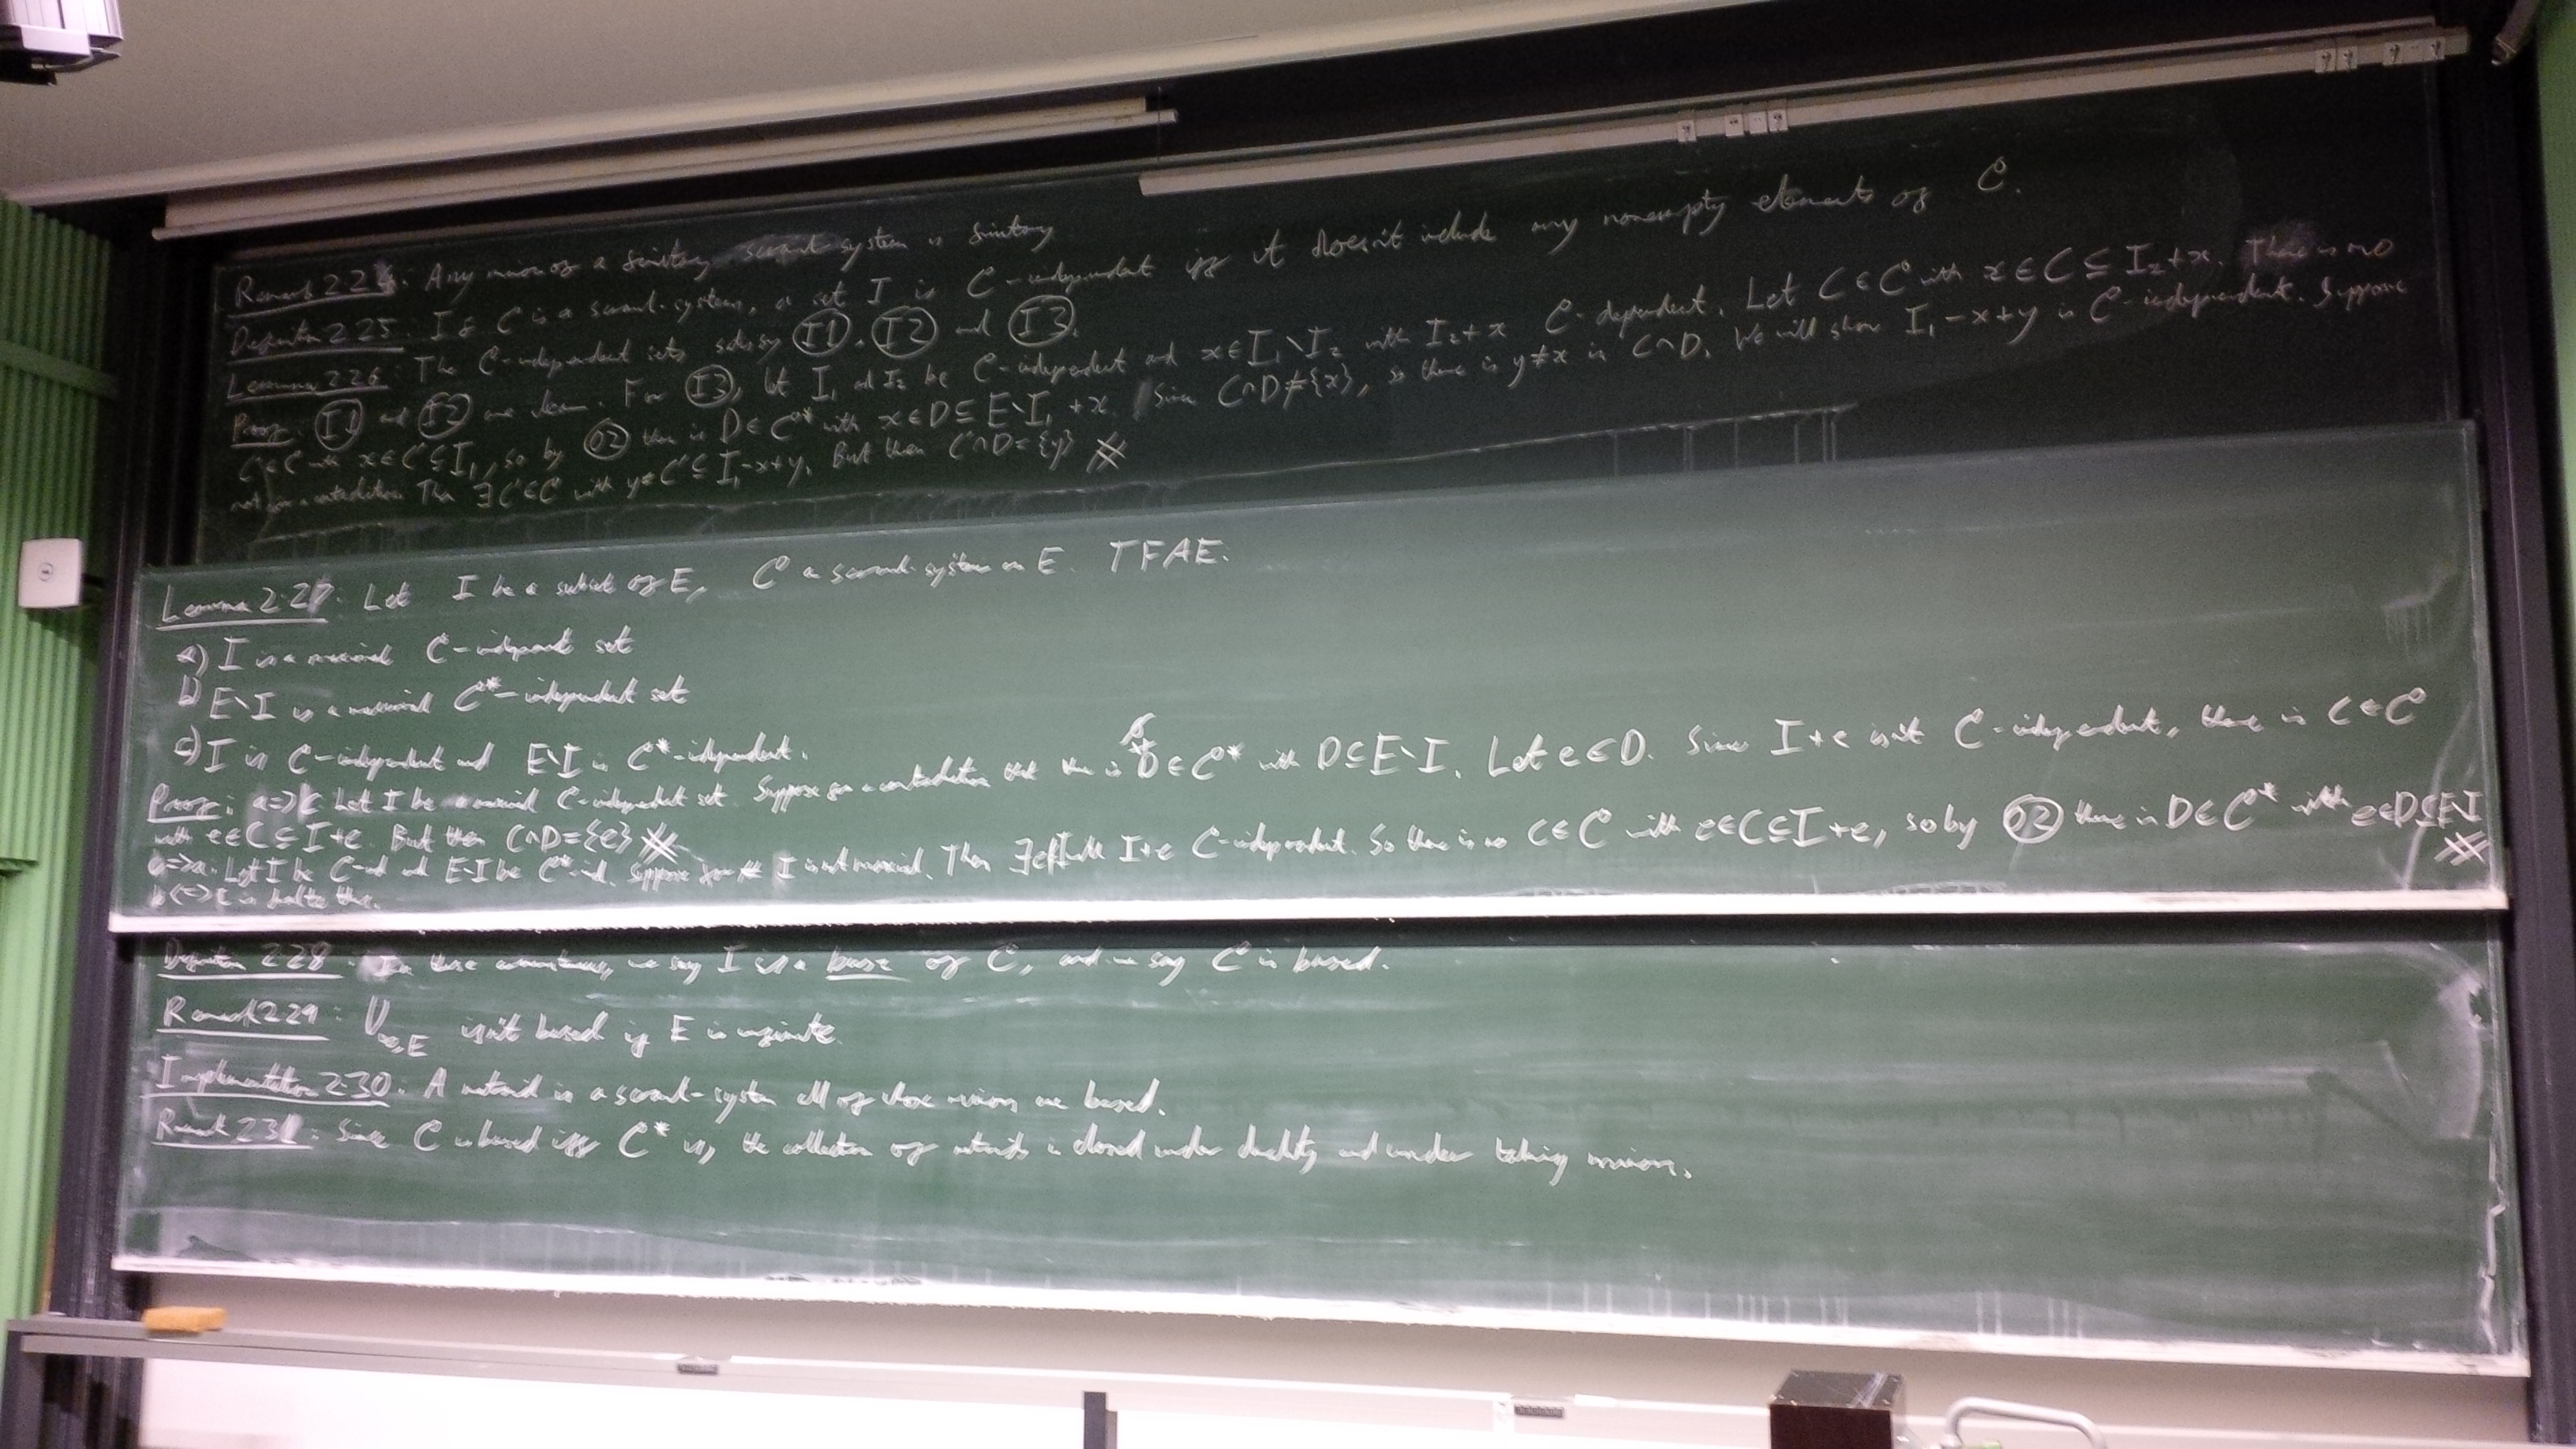 Remark 2.24: Any minor of a finitary scrawl system is finitary
Definition 2.25: If C is a scrawl-system, a set I is C-independent iff it doesn't include any nonempty elements of C.
Lemma 2.26: The C-independent sets satisfy (I1), (I2) and (I3).
Proof: (I1) and (I2) are clear. For (I3), let I₁ and I₂ be C-independent and x∈I₁∖I₂ with I₂+x C-dependent. Let C∈C with x∈C⊆I₂+x. There is no
C'∈C with x∈C'⊆I₁, so by (O2) there is D∈C* with x∈D⊆E∖I₁+x. Since C∩D≠{x}, so there is y≠x in C∩D. We will show I₁-x+y is C-independent. Suppose
not for a contradiction. Then ∃C'∈C with y∈C'⊆I₁-x+y. But then C'∩D={y} ※
Lemma 2.27: Let I be a subset of E, C a scrawl-system on E. TFAE.
a) I is a maximal C-independent set
b) E∖I is a maximal C*-independent set
c) I is C-independent and E∖I is C*-independent.
Proof: a=>c Let I be a maximal C-independent set. Suppose for a contradiction that there is D∈C* with D⊆E∖I. Let e∈D. Since I+e isn't C-independent, there is C∈C
with e∈C⊆I+e. But then C∩D={e} ※
c=>a: Let I be C-ind and E∖I be C*-ind. Suppose for ※ I is not maximal. Then ∃e∉I with I+e C-independent. So there is no C∈C with e∈C⊆I+e, so by (O2) there is D∈C* with e∈D⊆E∖I ※
b<=>c is dual to this.
Definition 2.28: In these circumstances, we say I is a base of C, and we say C is based.
Remark 2.29: U_{∞,E} isn't based if E is infinite.
Implementation 2.30: A matroid is a scrawl-system all of whose minors are based.
Remark 2.31: Since C is based iff C* is, the collection of matroids is closed under duality and under taking minors.